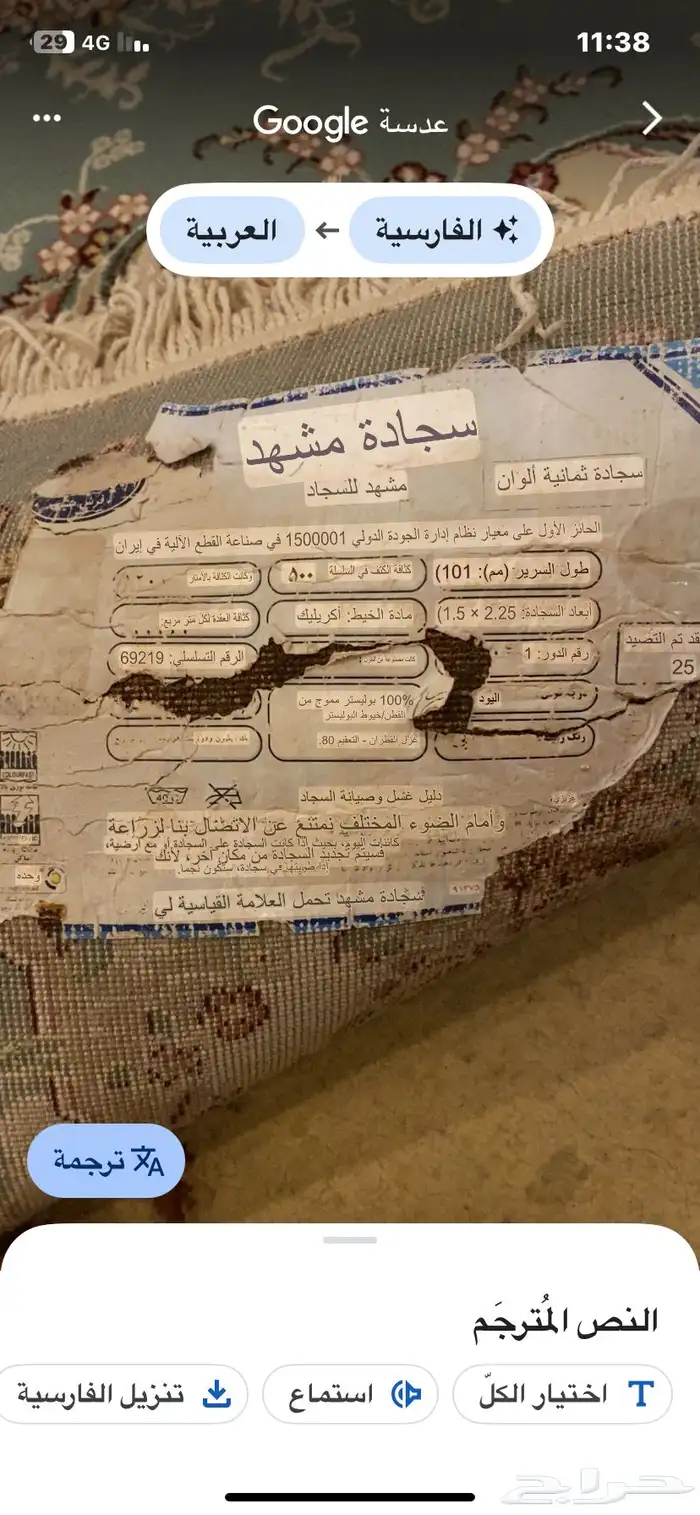 29 4G 11:38
Google عدسة
الفارسية ← العربية
سجادة مشهد
سجادة ثمانية ألوان
مشهد للسجاد
الحائز الأول على معيار نظام إدارة الجودة الدولي 1500001 في صناعة القطع الآلية في إيران
طول السرير (مم): 101)
كثافة الكتف في السلسلة ۵۰۰
وكانت الكثافة بالأمتار
أبعاد السجادة: 2.25 × 1.5)
مادة الخيط: أكريليك
كثافة العقدة لكل متر مربع.
قد تم التصيد
25
رقم الدور: 1
الرقم التسلسلي: 69219
اليود
100% بوليستر مموج من
القطن/خيوط البوليستر
غزل القطران - التعقيم 80.
دليل غسل وصيانة السجاد
40
COLOURFAST
وأمام الضوء المختلف نمتنع عن الاتصال بنا لزراعة
كائنات اليوم، بحيث إذا كانت السجادة على السجادة أو مع أرضية،
فسيتم تجديد السجادة من مكان آخر، لأنك
إذا ضربتها في سجادة، ستكون نجما.
وحده
۹۱۳۷۵
سجادة مشهد تحمل العلامة القياسية لي
ترجمة
النص المُترجَم
اختيار الكلّ
استماع
تنزيل الفارسية
حراج